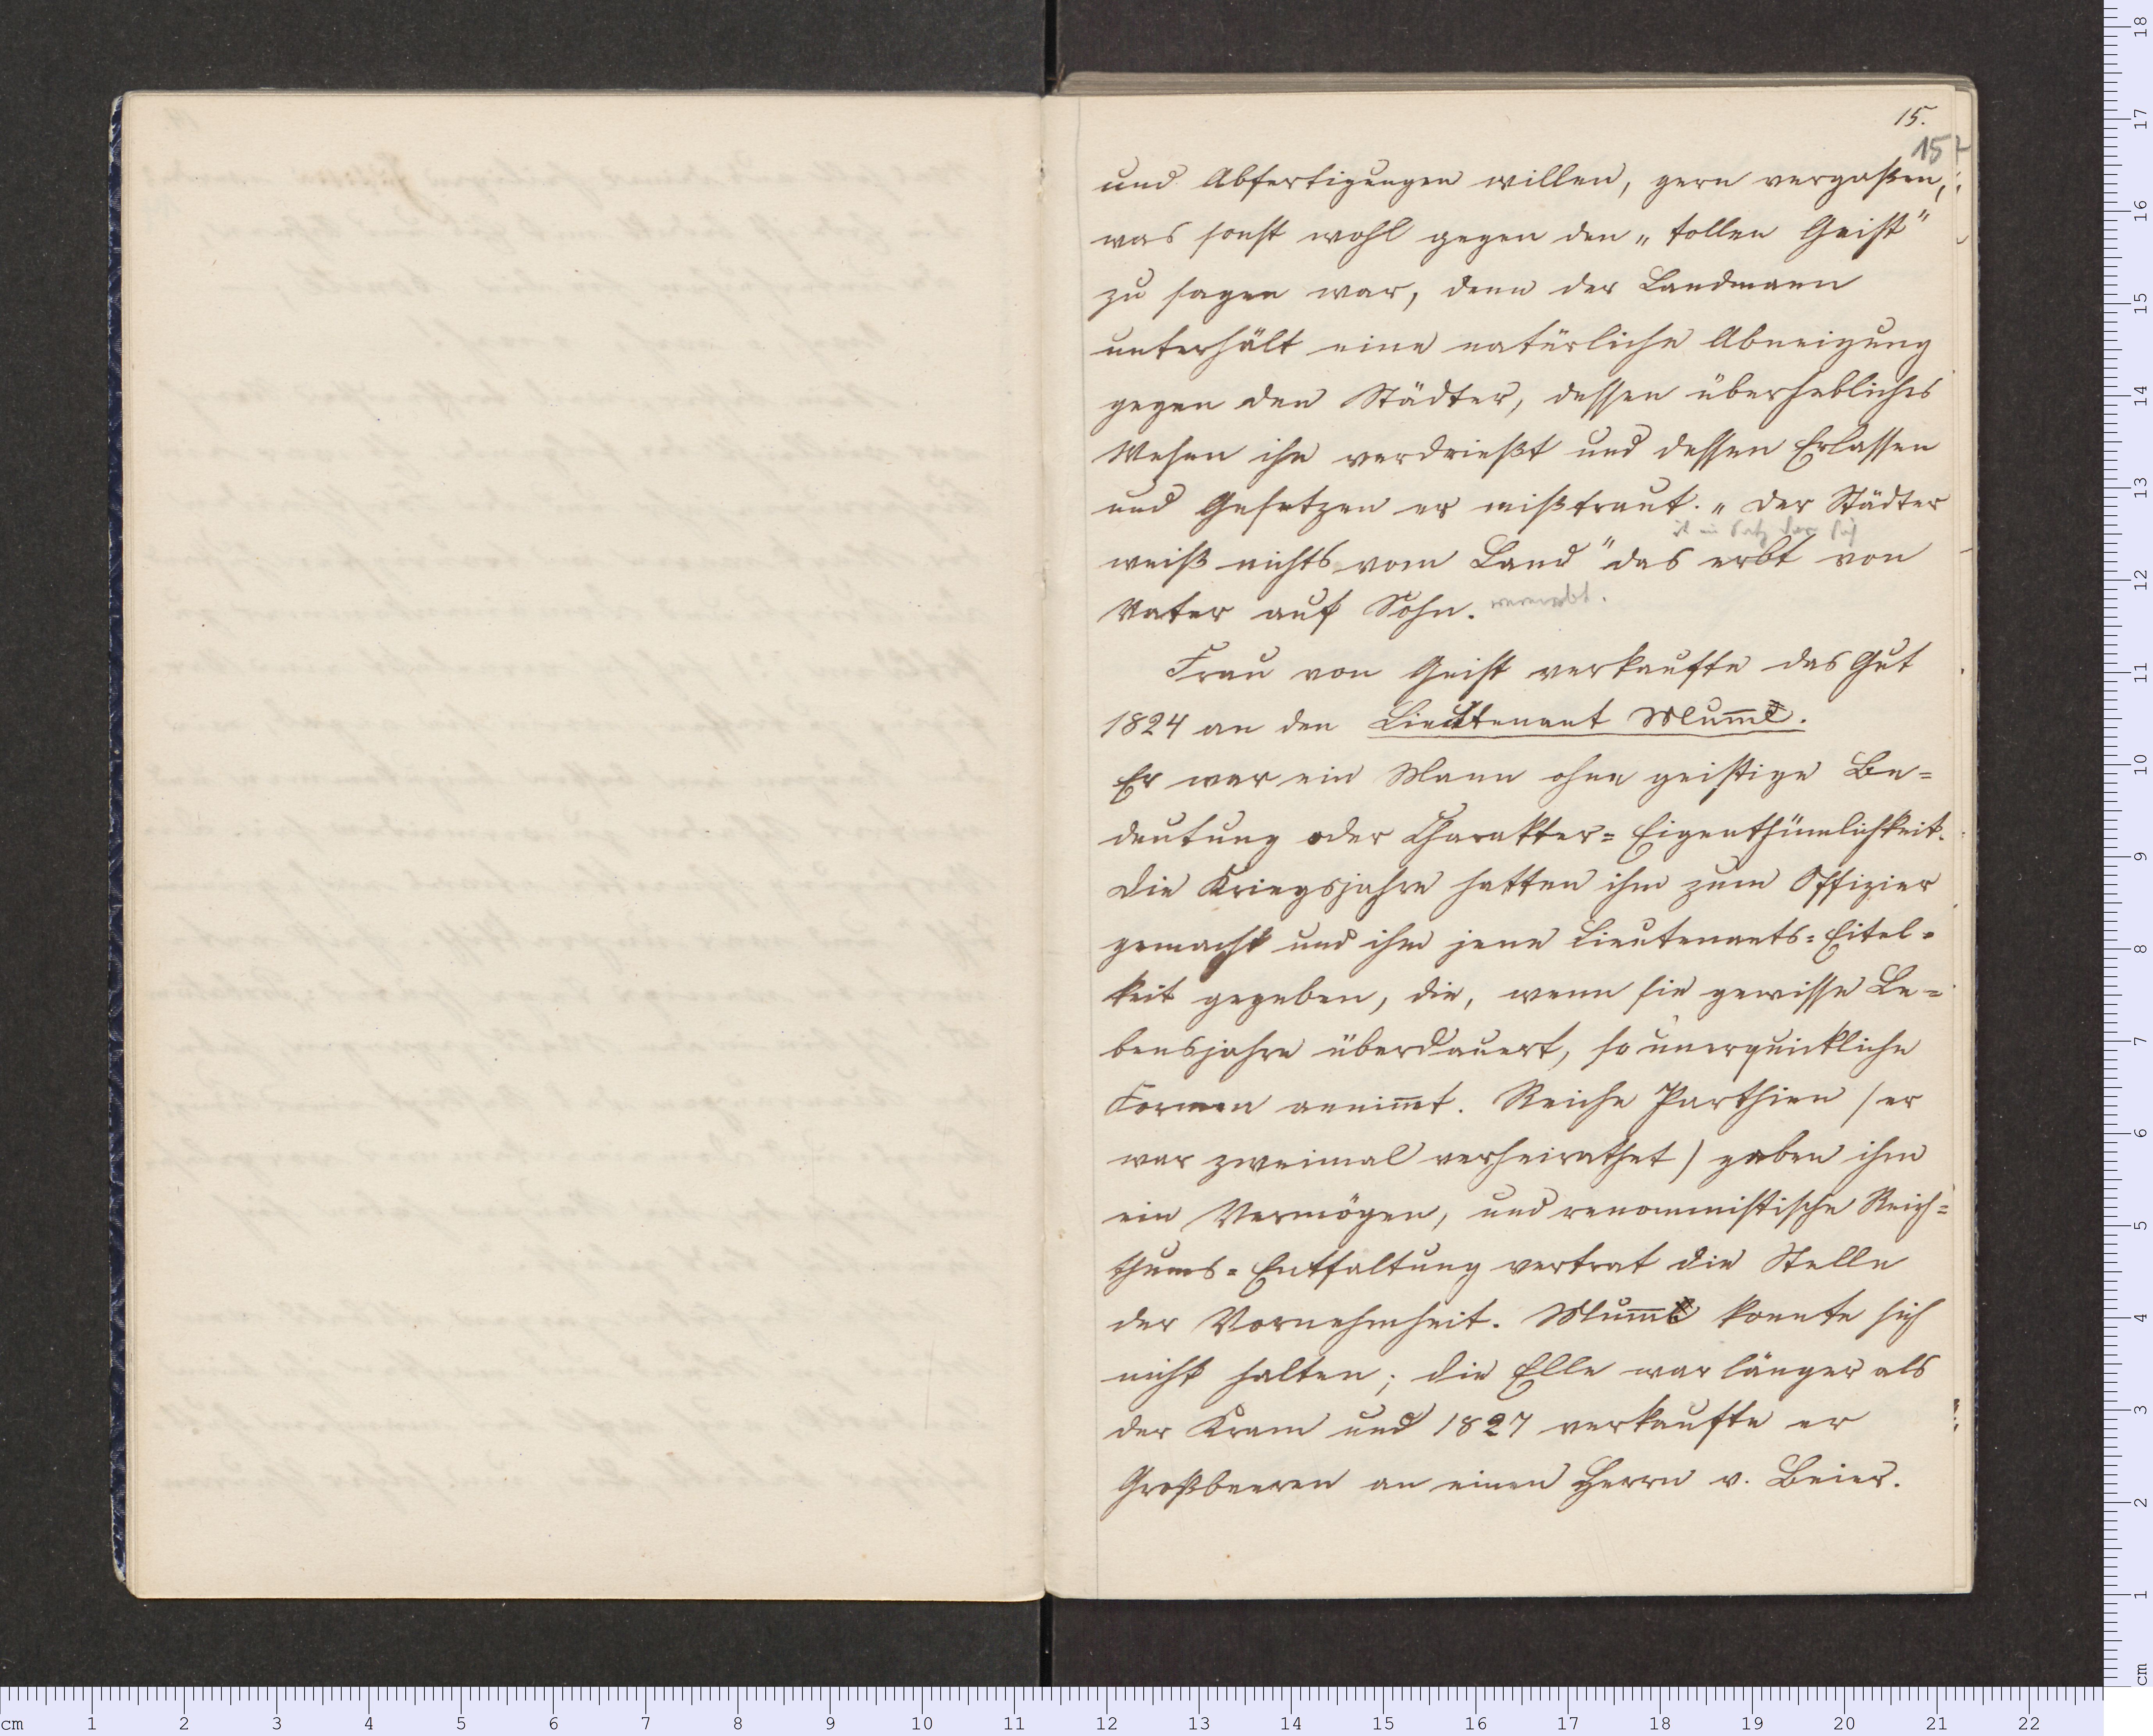 15.
15
und Abfertigungen willen, gern vergaßen,
was sonst wohl gegen den „tollen Geist"
zu sagen war, denn der Landmann
unterhält eine natürliche Abneigung
gegen den Städter, dessen überhebliches
Wesen ihn verdrießt und dessen Erlassen
und Gesetzen er mißtraut. „Der Städter
ist ein Satz der sich
weiß nichts vom Land" das erbt von
Vater auf Sohn. vererbt.
Frau von Geist verkaufte das Gut
1824 an den Lieutenant Mum̄e.
Er war ein Mann ohne geistige Be=
deutung oder Charakter=Eigenthümlichkeit.
Die Kriegsjahre hatten ihn zum Offizier
gemacht und ihm jene Lieutenants=Eitel=
keit gegeben, die, wenn sie gewisse Le=
bensjahre überdauert, so unerquickliche
Formen annim̄t. Reiche Parthien (er
war zweimal verheirathet) gaben ihm
ein Vermögen, und renommistische Reich=
thums=Entfaltung vertrat die Stelle
der Vornehmheit. Mum̄e konnte sich
nicht halten; die Elle war länger als
der Kram und 1827 verkaufte er
Großbeeren an einen Herrn v. Beier.